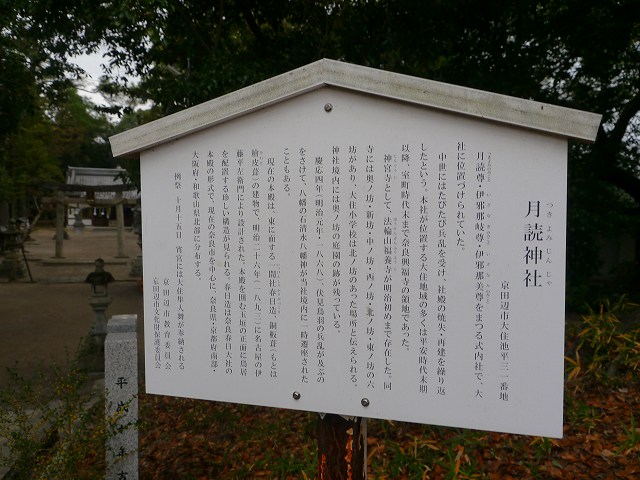 つきよみじんじゃ
月読神社
京田辺市大住池平三一番地
月読尊・伊邪那岐尊・伊邪那美尊をまつる式内社で、大
社に位置づけられていた。
中世にはたびたび兵乱を受け、社殿の焼失・再建を繰り返
したという。本社が位置する大住地域の多くは平安時代末期
以降、室町時代末まで奈良興福寺の領地であった。
神宮寺として、法輪山福養寺が明治初めまで存在した。同
寺には奥ノ坊・新坊・中ノ坊・西ノ坊・北ノ坊・東ノ坊の六
坊があり、大住小学校は北ノ坊のあった場所と伝えられる。
神社境内には奥ノ坊の庭園の跡が残っている。
慶応四年(明治元年・一八六八)、伏見鳥羽の兵乱が及ぶの
をさけて、八幡の石清水八幡神が当社境内に一時遷座された
こともある。
現在の本殿は、東に面する一間社春日造、銅板葺(もとは
桧皮葺)の建物で、明治二十六年(一八九三)に名古屋の伊
藤平左衛門により設計された。本殿を囲む瓦垣の正面に鳥居
を配置する珍しい構造が見られる。春日造は奈良春日大社の
本殿の形式で、現在の奈良市を中心に、奈良県・京都府南部・
大阪府・和歌山県北部に分布する。
例祭 十月十五日 宵宮には大住隼人舞が奉納される
京田辺市教育委員会
京田辺市文化財保護委員会
平成